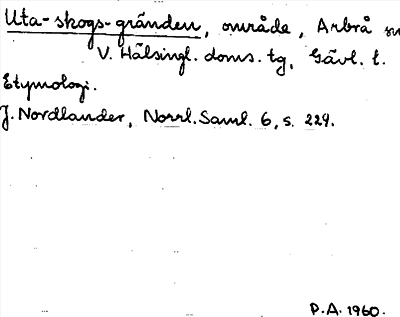 Uta-skogs-gränden, område, Arbrå sn
V. Hälsingl. doms. tg, Gävl. l.
Etymologi.
J. Nordlander, Norrl. Saml. 6, s. 229.
P.A. 1960.